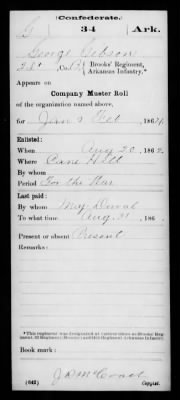 (Confederate.)
G 34 Ark.
George Gibson
Brooks' Regiment,
Arkansas Infantry.*
Appears on
Company Muster Roll
of the organization named above,
for Jan & Feb, 1864.
Enlisted:
When Aug 20, 1862.
Where Cane Hill
By whom
Period For the War
Last paid:
By whom Maj. Duval
To what time Aug. 31, 186
Present or absent Present
Remarks:
*This regiment was designated at various times as Brooks' Regiment,
Book mark:
(642)
Copyist.